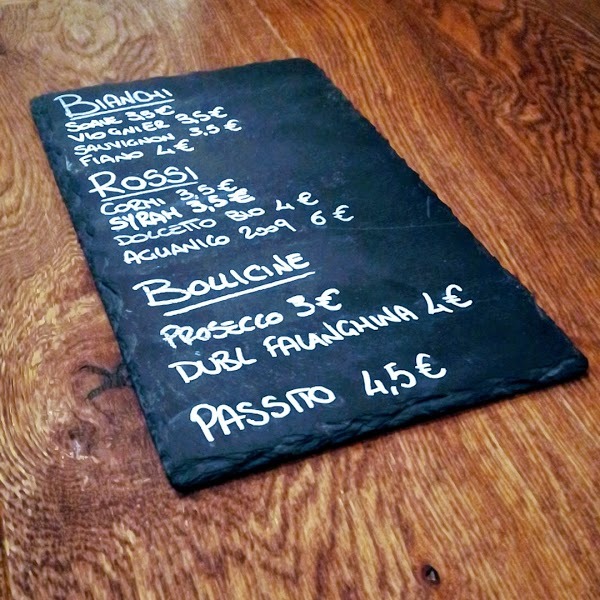 BIANCHI
SOAVE 3,5€
VIOGNIER 3,5€
SAUVIGNON 3,5€
FIANO 4€
ROSSI
CORMI 3,5€
SYRAH 3,5€
DOLCETTO BIO 4€
AGLIANICO 2009 6€
BOLLICINE
PROSECCO 3€
DUBL FALANGHINA 4€
PASSITO 4,5€